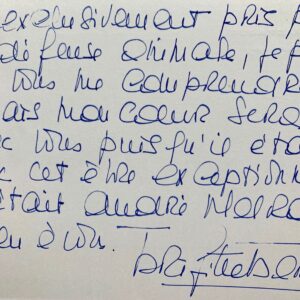 exclusivement pris p
défense animale, je p
vous me comprendre
ais mon coeur sera
c vous puisqu'il éta
c cet être exceptionn
était andré Malra
en à vous.
Brigitte Bar